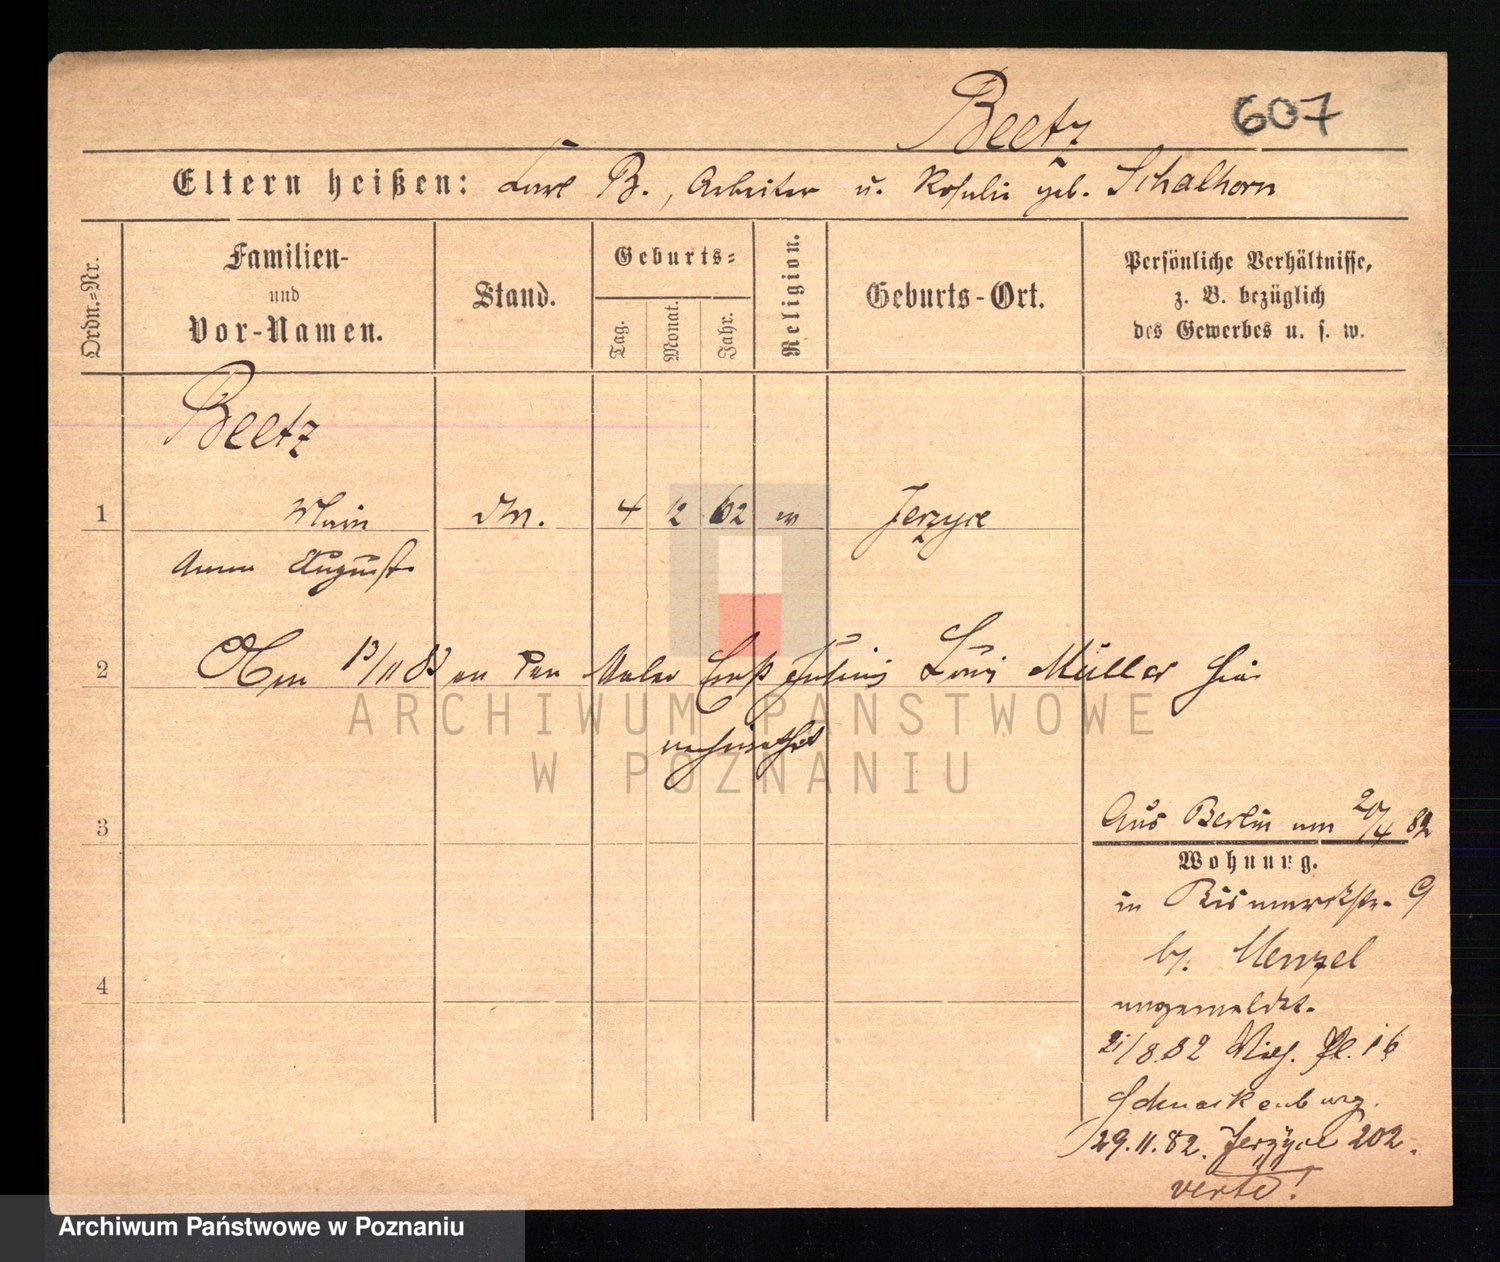 Beetz 607
Eltern heißen: Carl B., Arbeiter u. Rosalie geb. Schalhorn
Ordn.-Nr.
Familien-
und
Vor-Namen.
Stand.
Geburts-
Tag.
Monat.
Jahr.
Religion.
Geburts-Ort.
Persönliche Verhältnisse,
z. B. bezüglich
des Gewerbes u. s. w.
Beetz
1 4 12 62 Jerzyce
Anna August
2 Am 13/11 83 an den Maler Ernst Julius Louis Müller hier
verheirathet
ARCHIWUM PAŃSTWOWE
W POZNANIU
3
Aus Berlin am 20/4 82
Wohnung.
in Bismarckstr. 9
b/. Menzel
angemeldet.
4
21/8 82 Pl. 16
Schnackenburg.
29.11.82. Jerzyce 202.
verte!
Archiwum Państwowe w Poznaniu